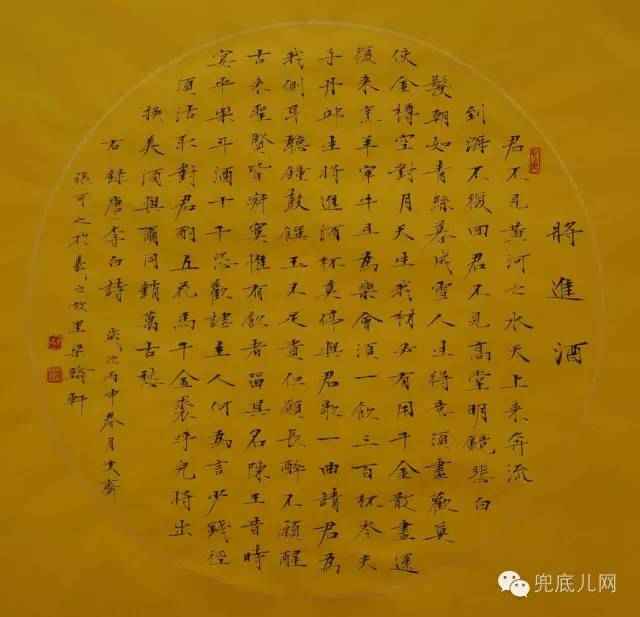 將進酒
君不見黃河之水天上来奔流
到海不復回君不見高堂明鏡悲白
髮朝如青絲暮成雪人生得意須盡歡莫
使金樽空對月天生我材必有用千金散盡還
復来烹羊宰牛且為樂會須一飲三百杯岑夫
子丹邱生將進酒杯莫停與君歌一曲請君為
我側耳聽鐘鼓饌玉不足貴但願長醉不願醒
古来聖賢皆寂寞惟有飲者留其名陳王昔時
宴平樂斗酒十千恣歡謔主人何為言少錢徑
須沽取對君酌五花馬千金裘呼兒將出
換美酒與爾同銷萬古愁
右錄唐李白詩 歲次丙申春月文齋
張可之於羲之故里軒
兜底儿网